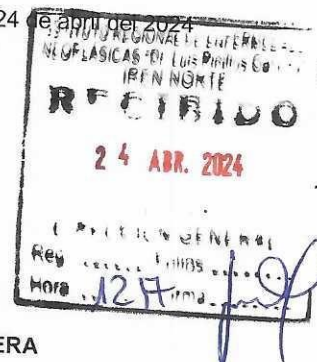 24 de abril del 2024
INSTITUTO REGIONAL DE ENFERMEDADES
NEOPLASICAS "Dr. Luis Pinillos
IREN NORTE
RECIBIDO
24 ABR. 2024
Reg ...... Folios ......
Hora 12 17 Firma
ERA